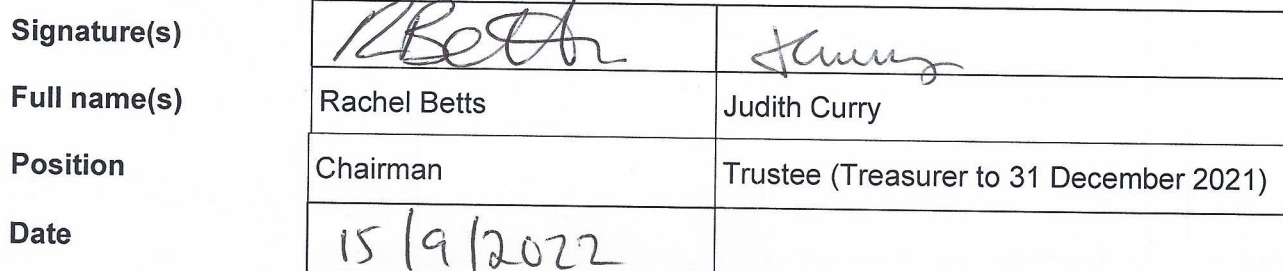 Signature(s) RBetts JCurry
Full name(s) Rachel Betts Judith Curry
Position Chairman Trustee (Treasurer to 31 December 2021)
Date 15/9/2022